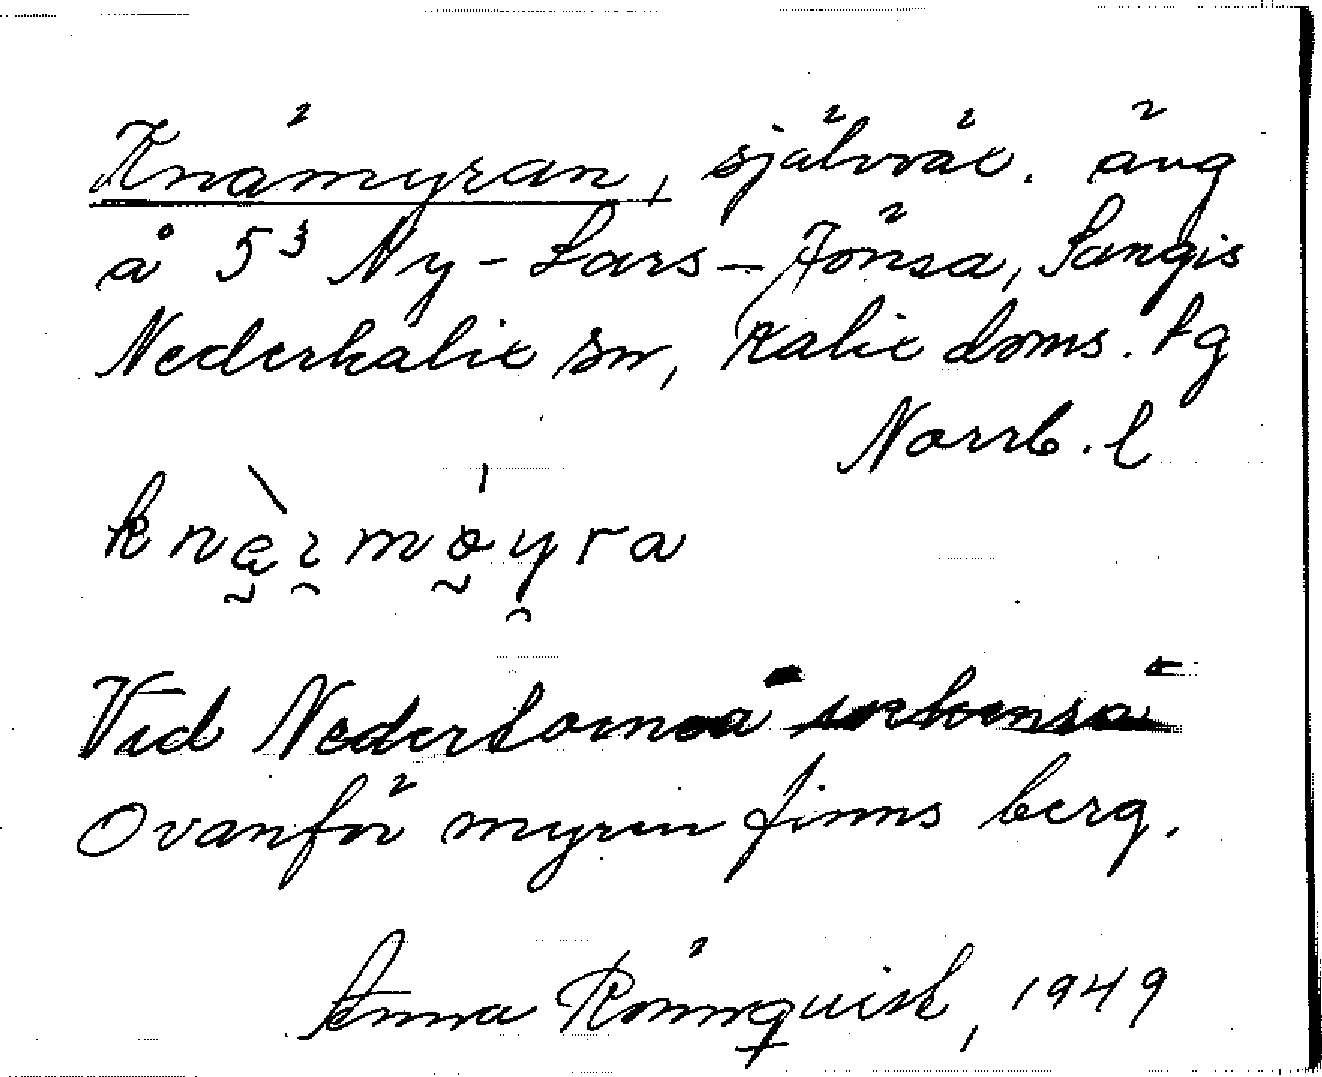 Knämyran, självväx. äng
å 5³ Ny-Lars-Jönsa, Sangis
Nederkalix sn, Kalix doms. tg
Norrb. l
Vid Nedertorneå
Ovanför myren finns berg.
Anna Rönnquist, 1949